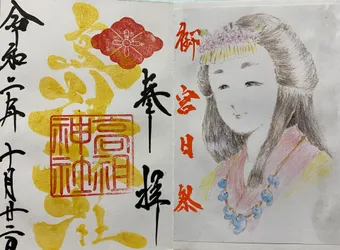 御宮日祭
奉拝
高祖神社
高祖
神社
令和二年十月廿